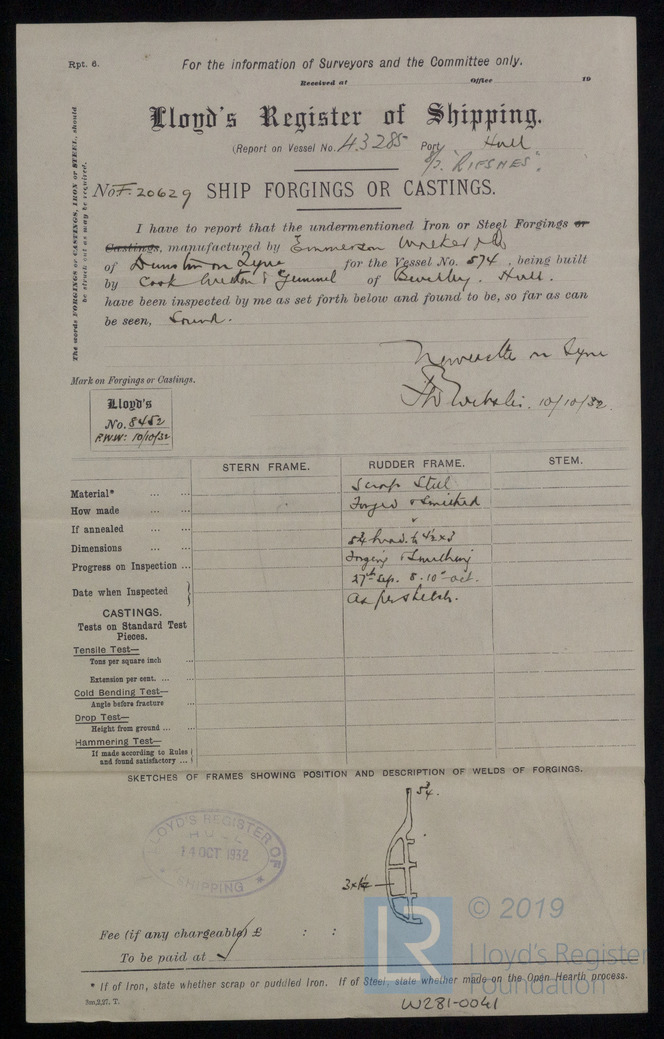 Rpt. 6.
For the information of Surveyors and the Committee only.
Received at Office 19
Lloyd's Register of Shipping.
(Report on Vessel No. 43285 Port Hull
S/T. "RIFSNES".
No F. 20629 SHIP FORGINGS OR CASTINGS.
The words FORGINGS or CASTINGS, IRON or STEEL, should
be struck out as may be required.
I have to report that the undermentioned Iron or Steel Forgings or
Castings, manufactured by Emmerson Walker Ltd
of Dunston on Tyne for the Vessel No. 574, being built
by Cook Welton & Gemmell of Beverley. Hull.
have been inspected by me as set forth below and found to be, so far as can
be seen, Sound.
Newcastle on Tyne
10/10/32.
Mark on Forgings or Castings.
Lloyd's
No. 8452
R.W.W: 10/10/32
STERN FRAME. RUDDER FRAME. STEM.
Material* ... ... Scrap Steel
How made ... ... Forged & Smithed
If annealed ... ...
Dimensions ... ... 5¾ head. to 4½x3
Progress on Inspection ... Forging & Smithing
27th Sep. 5. 10th oct.
Date when Inspected As per sketch.
CASTINGS.
Tests on Standard Test
Pieces.
Tensile Test—
Tons per square inch ...
Extension per cent. ... ...
Cold Bending Test—
Angle before fracture ...
Drop Test—
Height from ground ... ...
Hammering Test—
If made according to Rules
and found satisfactory ...
SKETCHES OF FRAMES SHOWING POSITION AND DESCRIPTION OF WELDS OF FORGINGS.
5¾.
LLOYD'S REGISTER OF
HULL
14 OCT 1932
* SHIPPING *
3x1¼
Fee (if any chargeable) £ : :
To be paid at
LR
© 2019
Lloyd's Register
Foundation
* If of Iron, state whether scrap or puddled Iron. If of Steel, state whether made on the Open Hearth process.
3m,2,27. T.
W281-0041